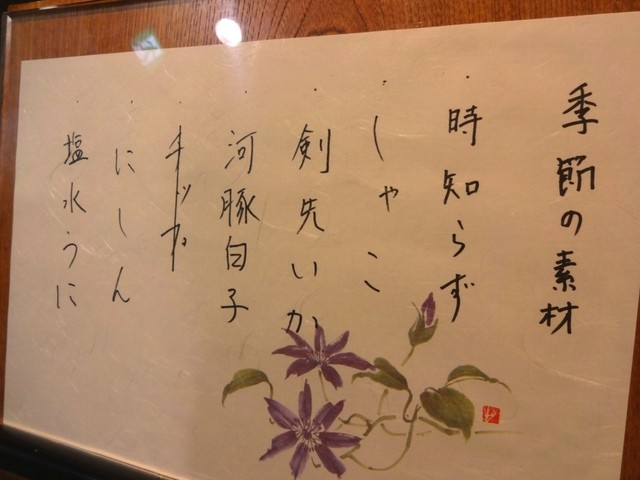 季節の素材
・時知らず
・しゃこ
・剣先いか
・河豚白子
・チップ
・にしん
・塩水うに